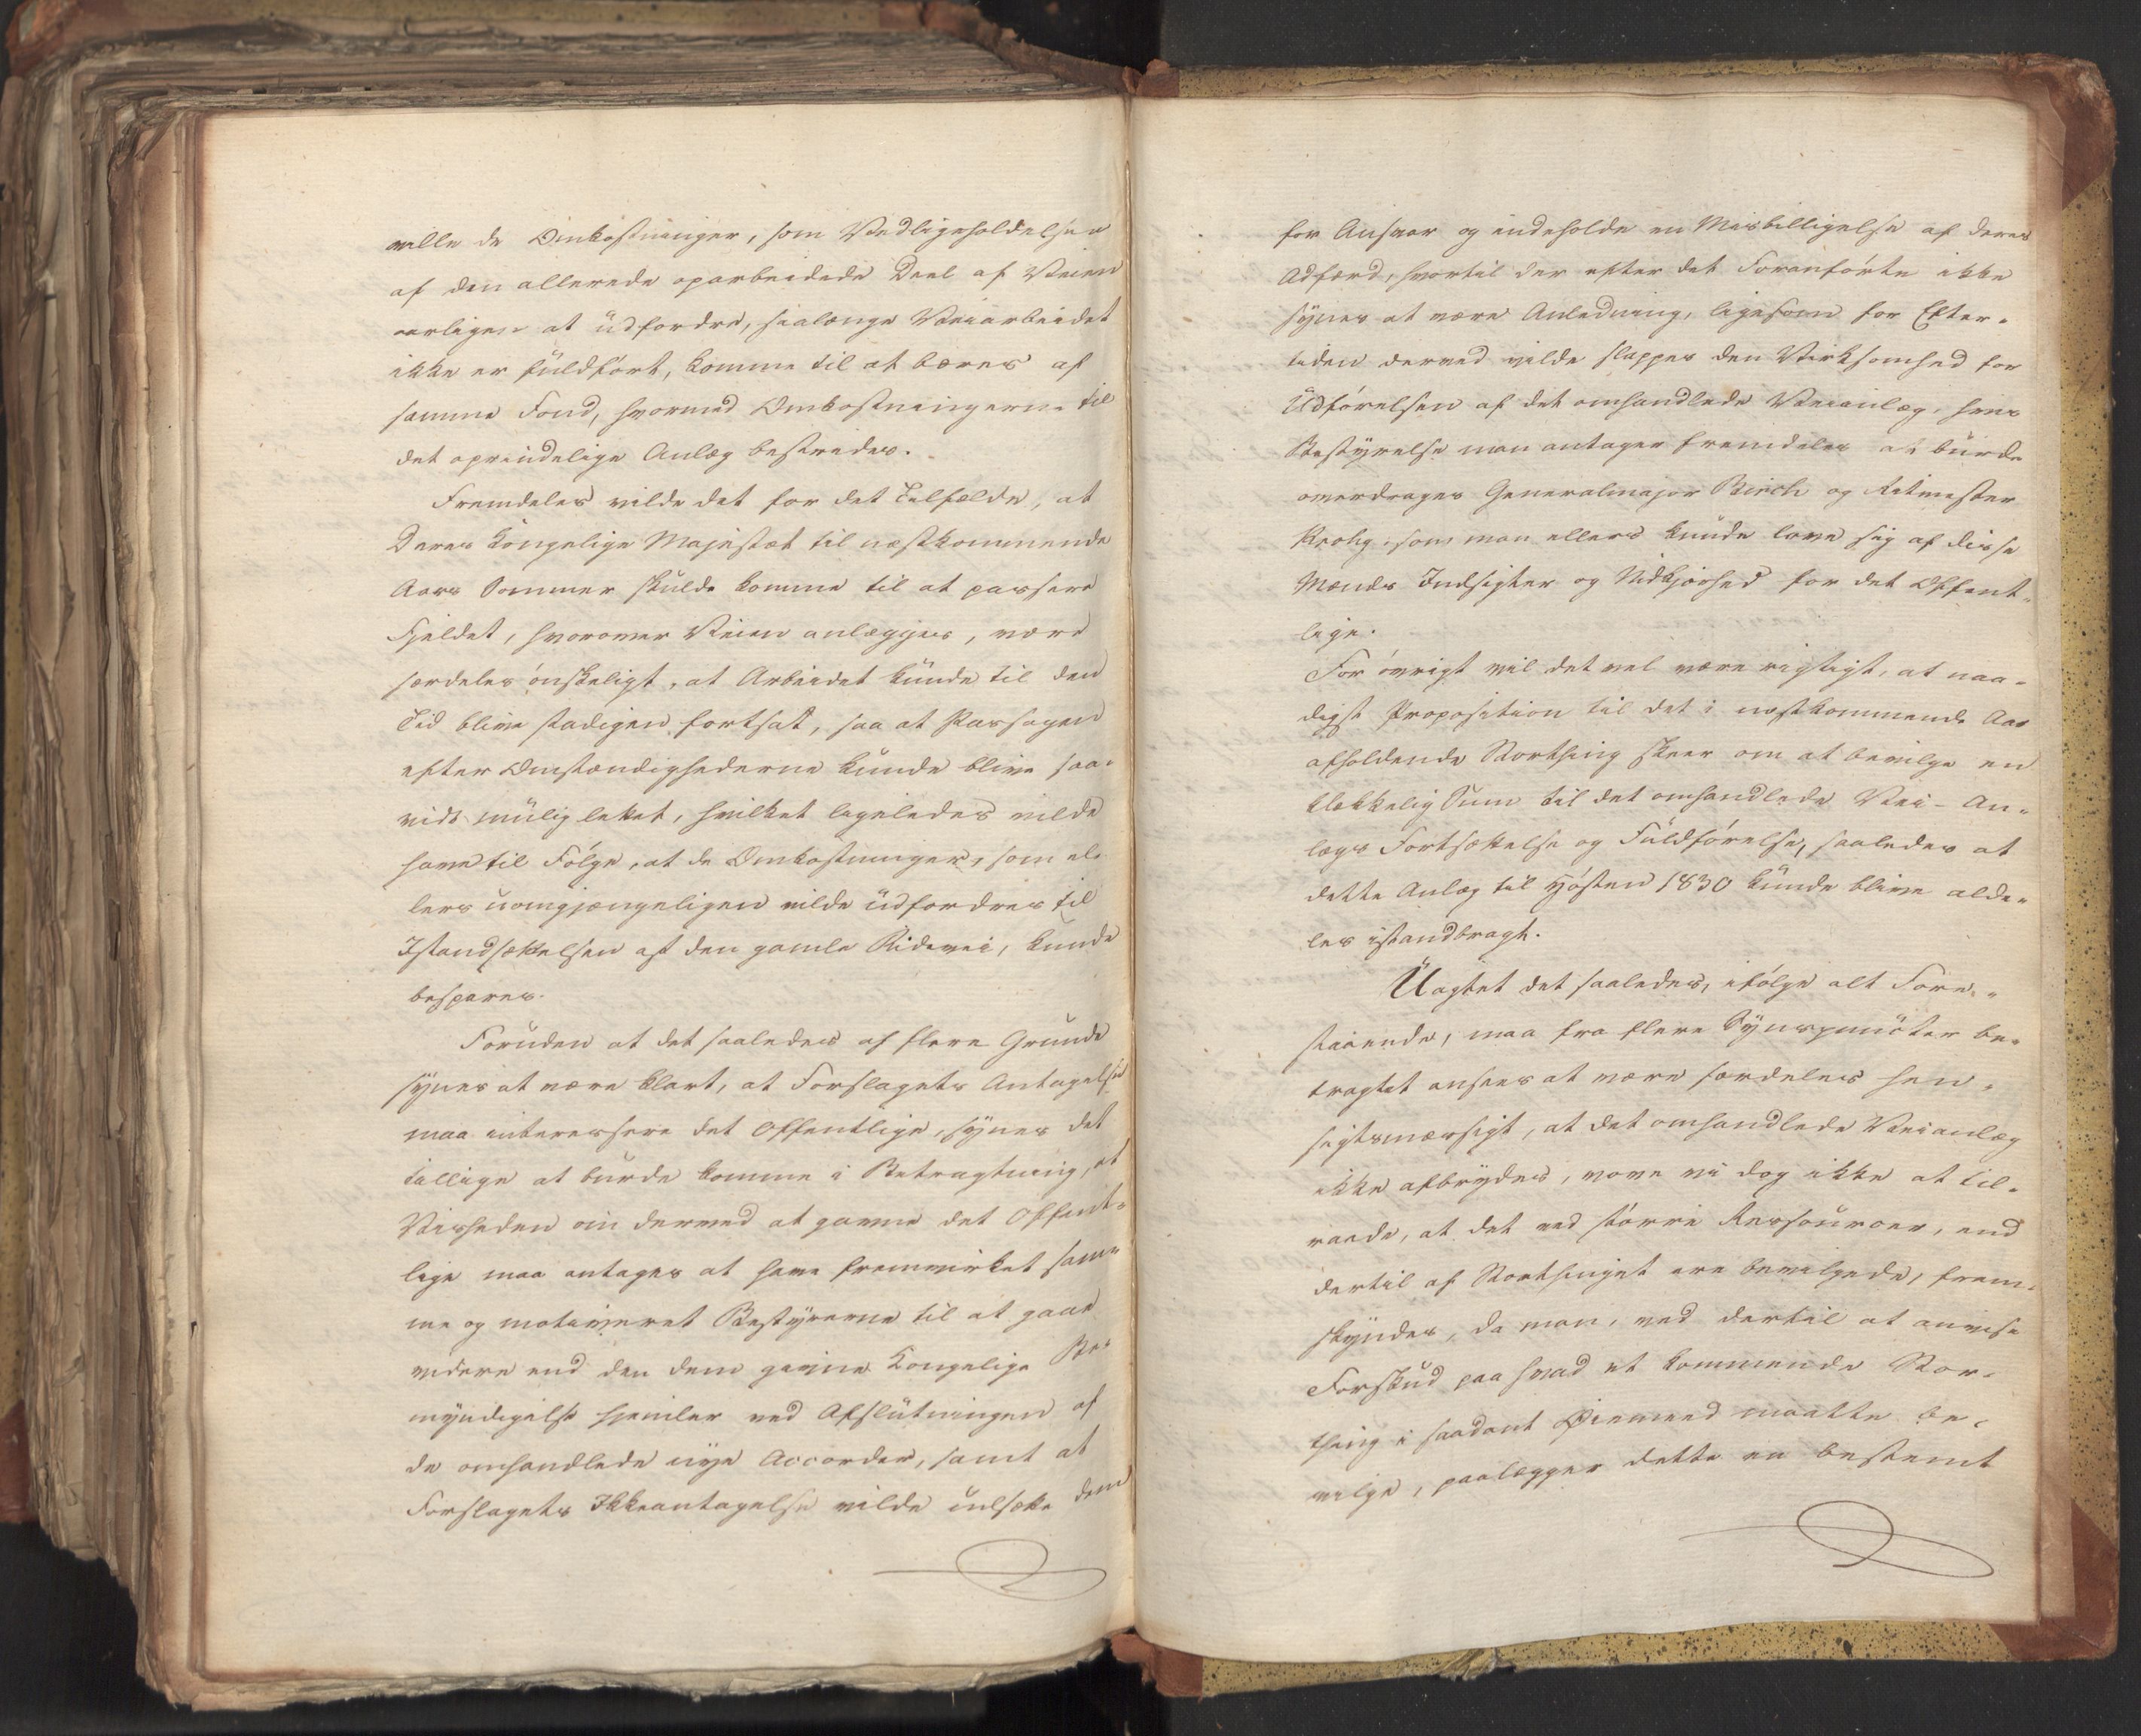 ville de Omkostninger, som Vedligeholdelsen
af den allerede oparbeidede Deel af Veien
aarligen at udfordre, saalænge Veiarbeidet
ikke er fuldført, komme til at bæres af
samme Fond, hvormed Omkostningerne til
det oprindelige Anlæg bestrides.
Fremdeles vilde det for det Tilfælde, at
Deres Kongelige Majestæt til næstkommende
Aars Sommer skulde komme til at passere
Fjeldet, hvorover Veien anlægges, være
særdeles ønskeligt, at Arbeidet kunde til den
Tid blive stadigen fortsat, saa at Passagen
efter Omstændighederne kunde blive saa-
vidt mulig lettet, hvilket ligeledes vilde
have til Følge, at de Omkostninger, som el-
lers uomgjængeligen vilde udfordres til
Istandsættelsen af den gamle Ridevei, kunde
bespares.
Foruden at det saaledes af flere Grunde
synes at være klart, at Forslagets Antagelse
maa interessere det Offentlige, synes det
tillige at burde komme i Betragtning, at
Visheden om derved at gavne det Offent-
lige maa antages at have fremvirket sam-
me og motiveret Bestyrerne til at gaae
videre end den dem givne Kongelige Be-
myndigelse hjemler ved Afslutningen af
de omhandlede nye Accorder, samt at
Forslagets Ikkeantagelse vilde udsætte dem
for Ansvar og indeholde en Misbilligelse af deres
Adfærd, hvortil der efter det Foranførte ikke
synes at være Anledning, ligesom for Efter-
tiden derved vilde slappes den Virksomhed for
Udførelsen af det omhandlede Veianlæg, hvis
Bestyrelse man antager fremdeles at burde
overdrages Generalmajor Birch og Ritmester
Krohg, som man ellers kunde love sig af disse
Mænds Indsigter og Nidkjærhed for det Offent-
lige.
For øvrigt vil det vel være rigtigt, at naa-
digst Proposition til det i næstkommende Aar
afholdende Storthing skeer om at bevilge en
tilstrækkelig Sum til det omhandlede Vei-An-
lægs Fortsættelse og Fuldførelse, saaledes at
dette Anlæg til Høsten 1830 kunde blive alde-
les istandbragt.
Uagtet det saaledes, ifølge alt Fore-
staaende, maa fra flere Synspuncter be-
tragtet ansees at være særdeles hen-
sigtsmæssigt, at det omhandlede Veianlæg
ikke afbrydes, vove vi dog ikke at til-
raade, at det ved større Ressourcer, end
dertil af Storthinget ere bevilgede, frem-
skyndes, da man, ved dertil at anvise
Forskud paa hvad et kommende Stor-
thing i saadant Øiemed maatte be-
vilge, paalægger dette en bestemt